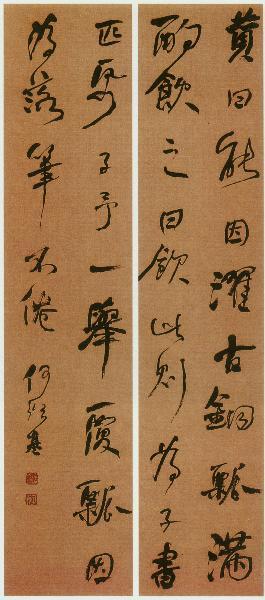 黃曰能因濯古銅瓢滿
酌飲之曰飲此則為子書
匹帋子予一舉覆瓢因
為落筆不倦 何紹基